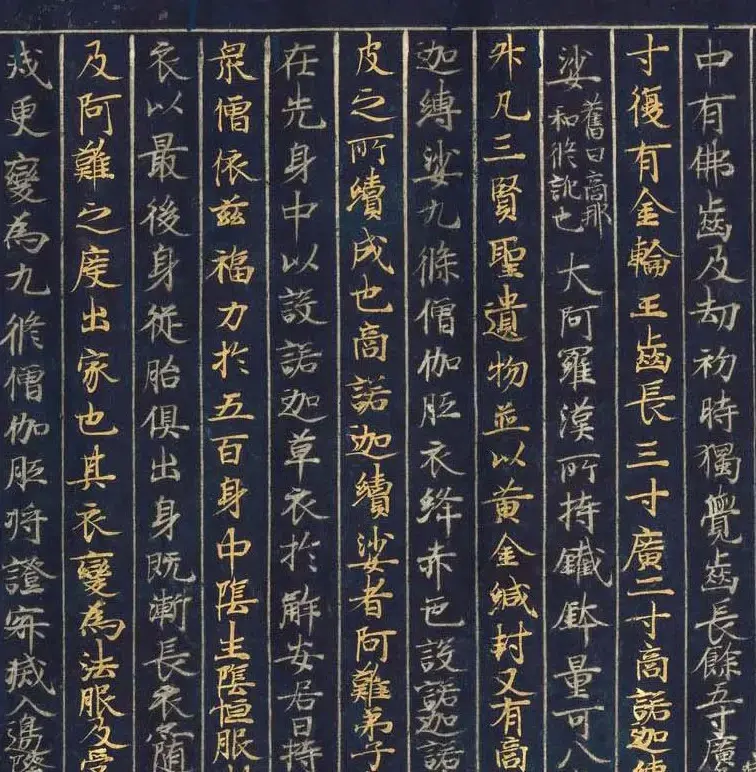 中有佛齒及劫初時獨覺齒長餘五寸廣
寸復有金輪王齒長三寸廣二寸商諾迦縛
娑舊曰商那和修訛也大阿羅漢所持鐵鉢量可八
升凡三賢聖遺物並以黃金緘封又有商
迦縛娑九條僧伽胝衣絳赤色設諾迦諾
皮之所績成也商諾迦縛娑者阿難弟子
在先身中以設諾迦草衣於解安居日持
眾僧依茲福力於五百身中陰生陰恒服
衣以最後身從胎俱出身既漸長衣亦隨
及阿難之度出家也其衣變為法服及受
戒更變為九條僧伽胝將證寂滅入邊際